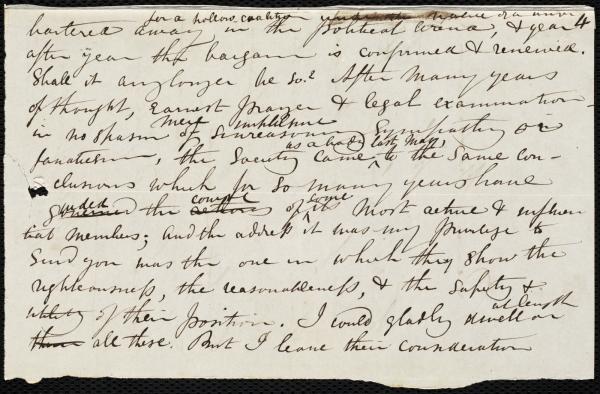 for a hollow coalition
bartered away in the political arena, & year 4
after year the bargain is confirmed & renewed.
Shall it any longer be so? After many years
of thought, earnest prayer & legal examination -
mere impulsive
in no spasm of unreasoning sympathy or
as a body last May,
fanaticism, the Society came to the same con-
clusions which for so many years have
guided course some
the actions of it most active & influen
tial members; and the address it was my privilege to
send you was the one in which they show the
righteousness, the reasonableness, & the safety &
at length
utility of their position. I could gladly dwell on
them all these. But I leave their consideration